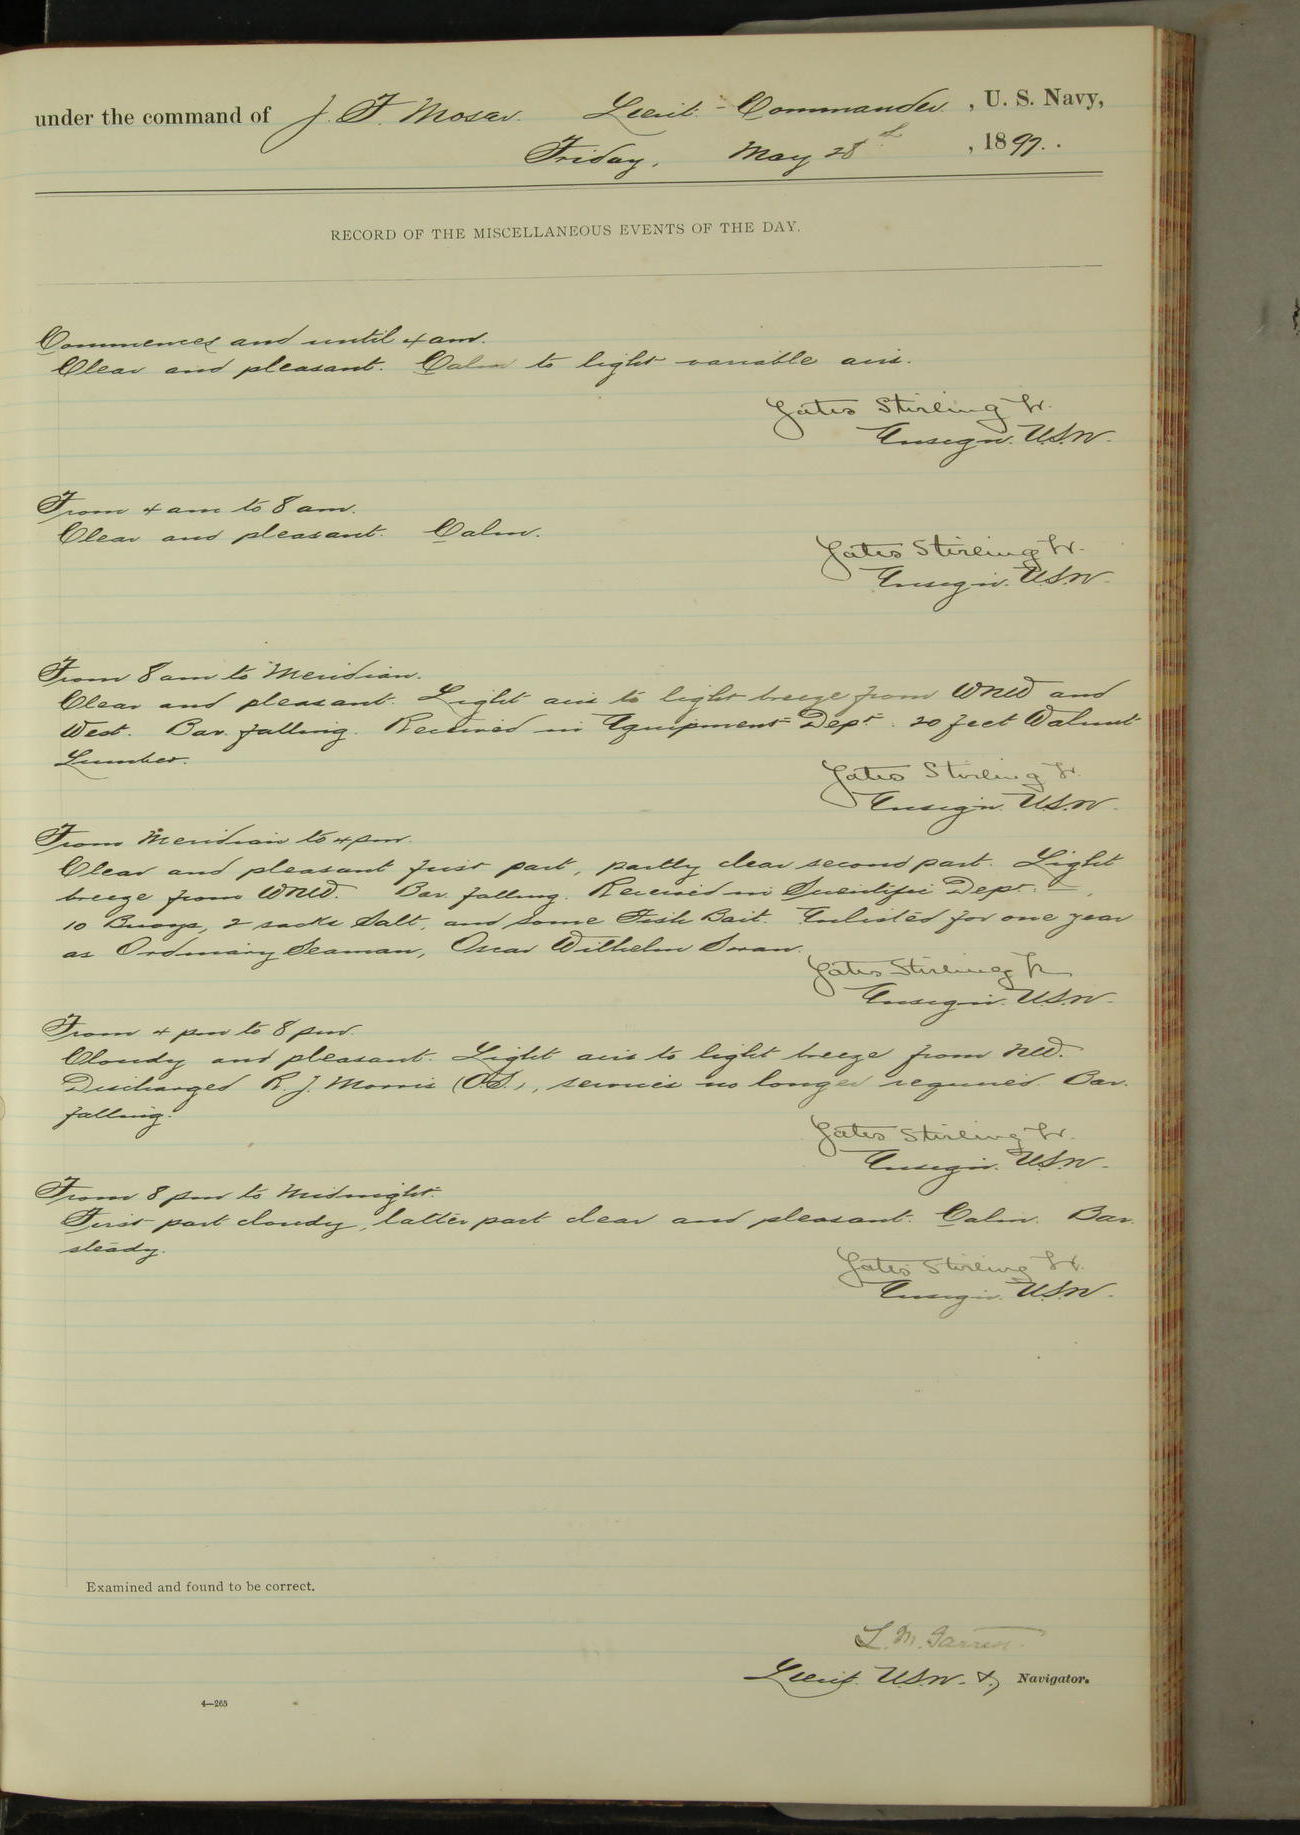 under the command of J. F. Moser Lieut.-Commander, U. S. Navy,
Friday, May 28th, 1897.
RECORD OF THE MISCELLANEOUS EVENTS OF THE DAY.
Commences and until 4 am.
Clear and pleasant. Calm to light variable airs.
Yates Stirling Jr.
Ensign. U.S.N.
From 4 am to 8 am.
Clear and pleasant. Calm.
Yates Stirling Jr.
Ensign. U.S.N.
From 8 am to Meridian.
Clear and pleasant. Light airs to light breeze from WNW and
West. Bar. falling. Received in Equipment Dept. 20 feet Walnut
Lumber.
Yates Stirling Jr.
Ensign. U.S.N.
From Meridian to 4 pm.
Clear and pleasant first part, partly clear second part. Light
breeze from WNW. Bar. falling. Received in Scientific Dept.
10 Buoys, 2 sacks Salt, and some Fish Bait. Enlisted for one year
as Ordinary Seaman, Oscar Wilhelm Swan.
Yates Stirling Jr
Ensign. U.S.N.
From 4 pm to 8 pm.
Cloudy and pleasant. Light airs to light breeze from NW.
Discharged R. J. Morris (O.S.), services no longer required. Bar.
falling.
Yates Stirling Jr.
Ensign. U.S.N.
From 8 pm to Midnight.
First part cloudy, latter part clear and pleasant. Calm. Bar.
steady.
Yates Stirling Jr.
Ensign. U.S.N.
Examined and found to be correct.
L. M. Garrett.
Lieut. U.S.N. &, Navigator.
4—263